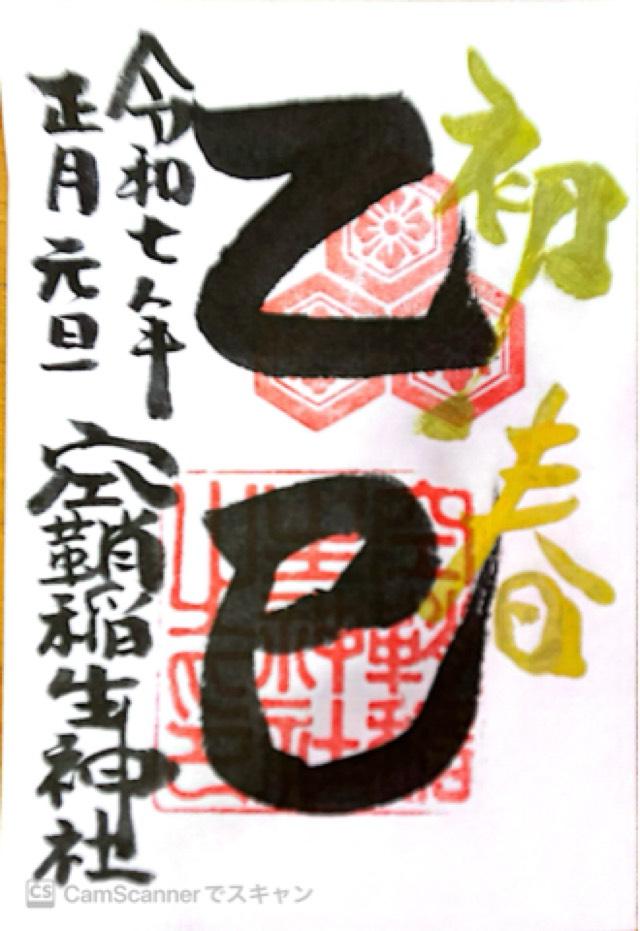 初春
乙巳
令和七年
正月元旦
空鞘稲生神社
CS CamScannerでスキャン